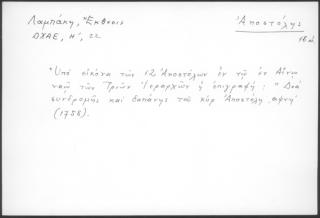 Λαμπάκη, Ἔκθεσις
ΔΧΑΕ, Η', 22
Ἀποστόλης
18 αἰ.
"Ὑπὸ εἰκόνα τῶν 12 Ἀποστόλων ἐν τῷ ἐν Αἴνῳ
ναῷ τῶν Τριῶν Ἱεραρχῶν ἡ ἐπιγραφή: "Διὰ
συνδρομῆς καὶ δαπάνης τοῦ κὺρ Ἀποστόλη ͵αψνη'
(1758).